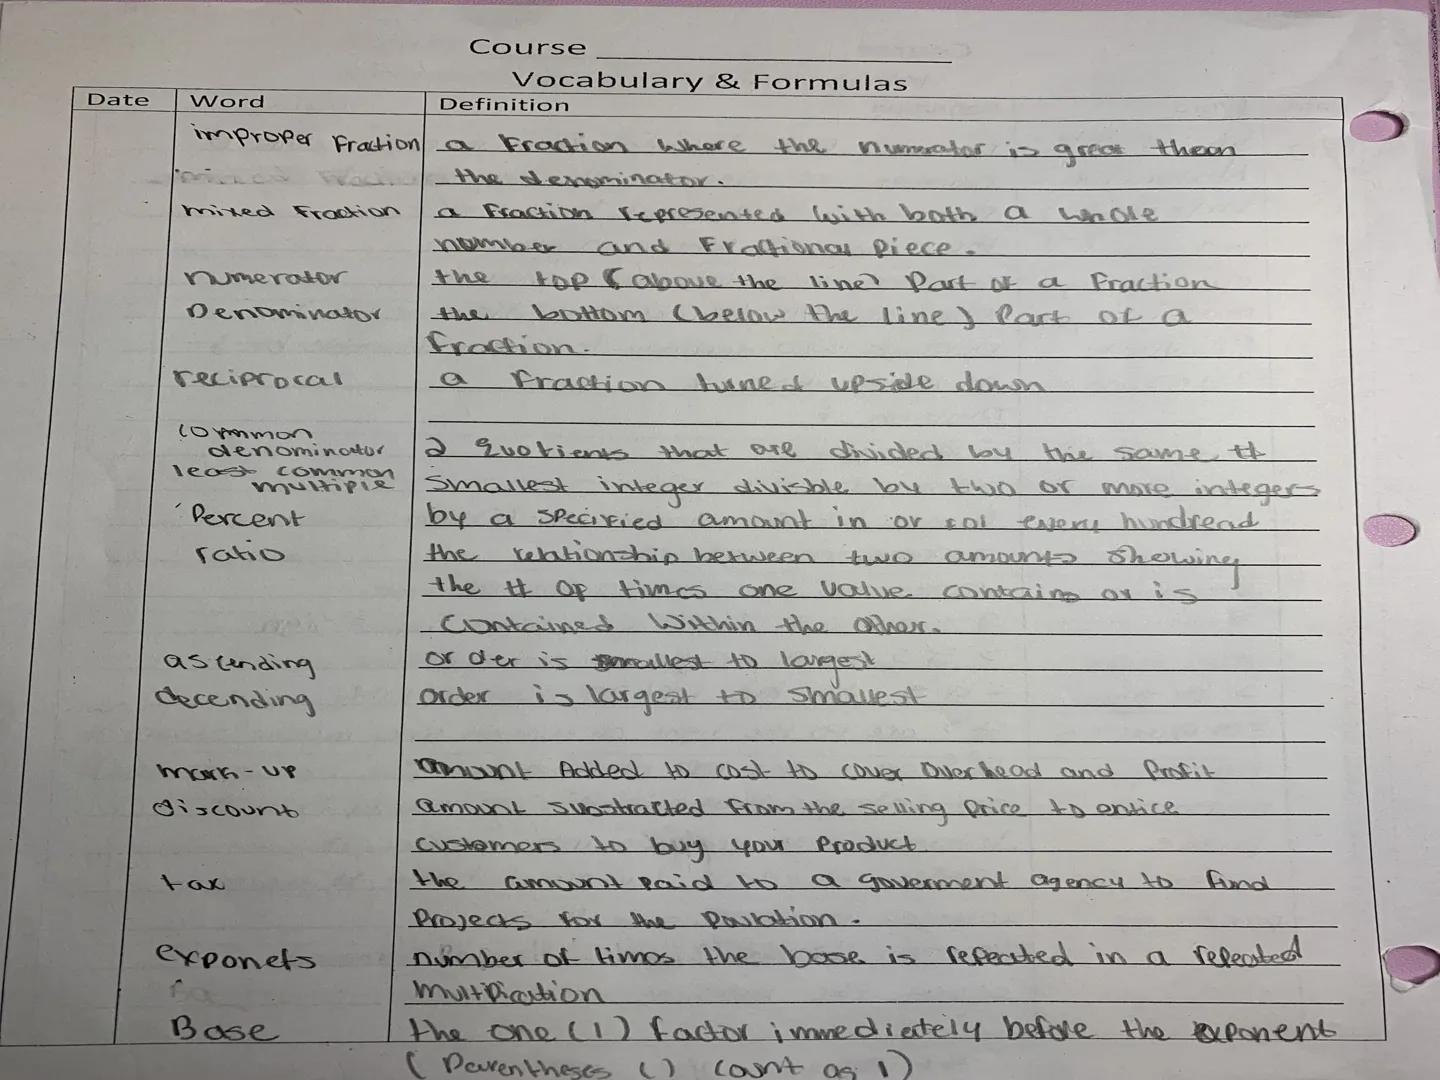 Course
Vocabulary & Formulas
Date Word Definition
improper Fraction a Fraction where the numerator is great than
the denominator.
mixed Fraction a Fraction represented with both a whole
number and Fractional piece.
numerator the top (above the line) Part of a Fraction
Denominator the bottom (below the line) Part of a
fraction.
reciprocal a fraction turned upside down
common
denominator 2 quotients that are divided by the same #
least common
multiple Smallest integer divisible by two or more integers
Percent by a specified amount in or for every hundread
ratio the relationship between two amounts showing
the # of times one value contains or is
Contained Within the other.
ascending order is smallest to largest
decending order is largest to smallest
mark-up amount Added to cost to cover overhead and Profit
discount amount substracted from the selling price to entice
customers to buy your Product
tax the amount paid to a goverment agency to fund
Projects for the
exponets number of times the base is repeated in a repeated
Base the one (1) factor immediately before the exponent
(Parentheses () count as 1)